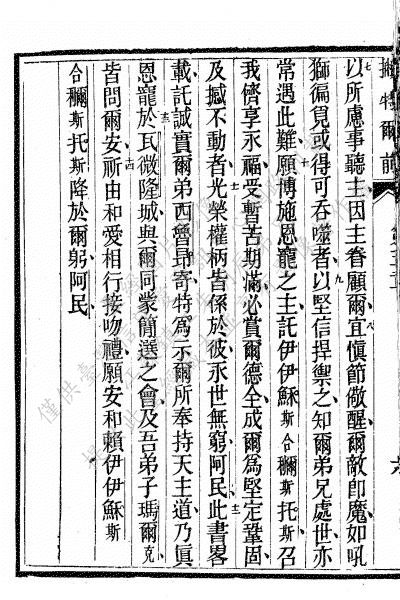 撇特爾前
七
以所慮事聽主因主眷顧爾八宜愼節儆醒爾敵卽魔如吼
獅徧覓或得可吞噬者九以堅信捍禦之知爾弟兄處世亦
常遇此難十願博施恩寵之主託伊伊穌斯合穪斯托斯召
我儕享永福受暫苦期滿必賞爾德全成爾爲堅定鞏固
及撼不動者十一光榮權柄皆係於彼永世無窮阿民十二此書畧
載託誠實爾弟西魯昂寄特爲示爾所奉持天主道乃眞
恩寵十三於瓦微隆城與爾同蒙簡選之會及吾弟子瑪爾克
皆問爾安十四祈由和愛相行接吻禮願安和賴伊伊穌斯
合穪斯托斯降於爾躬阿民